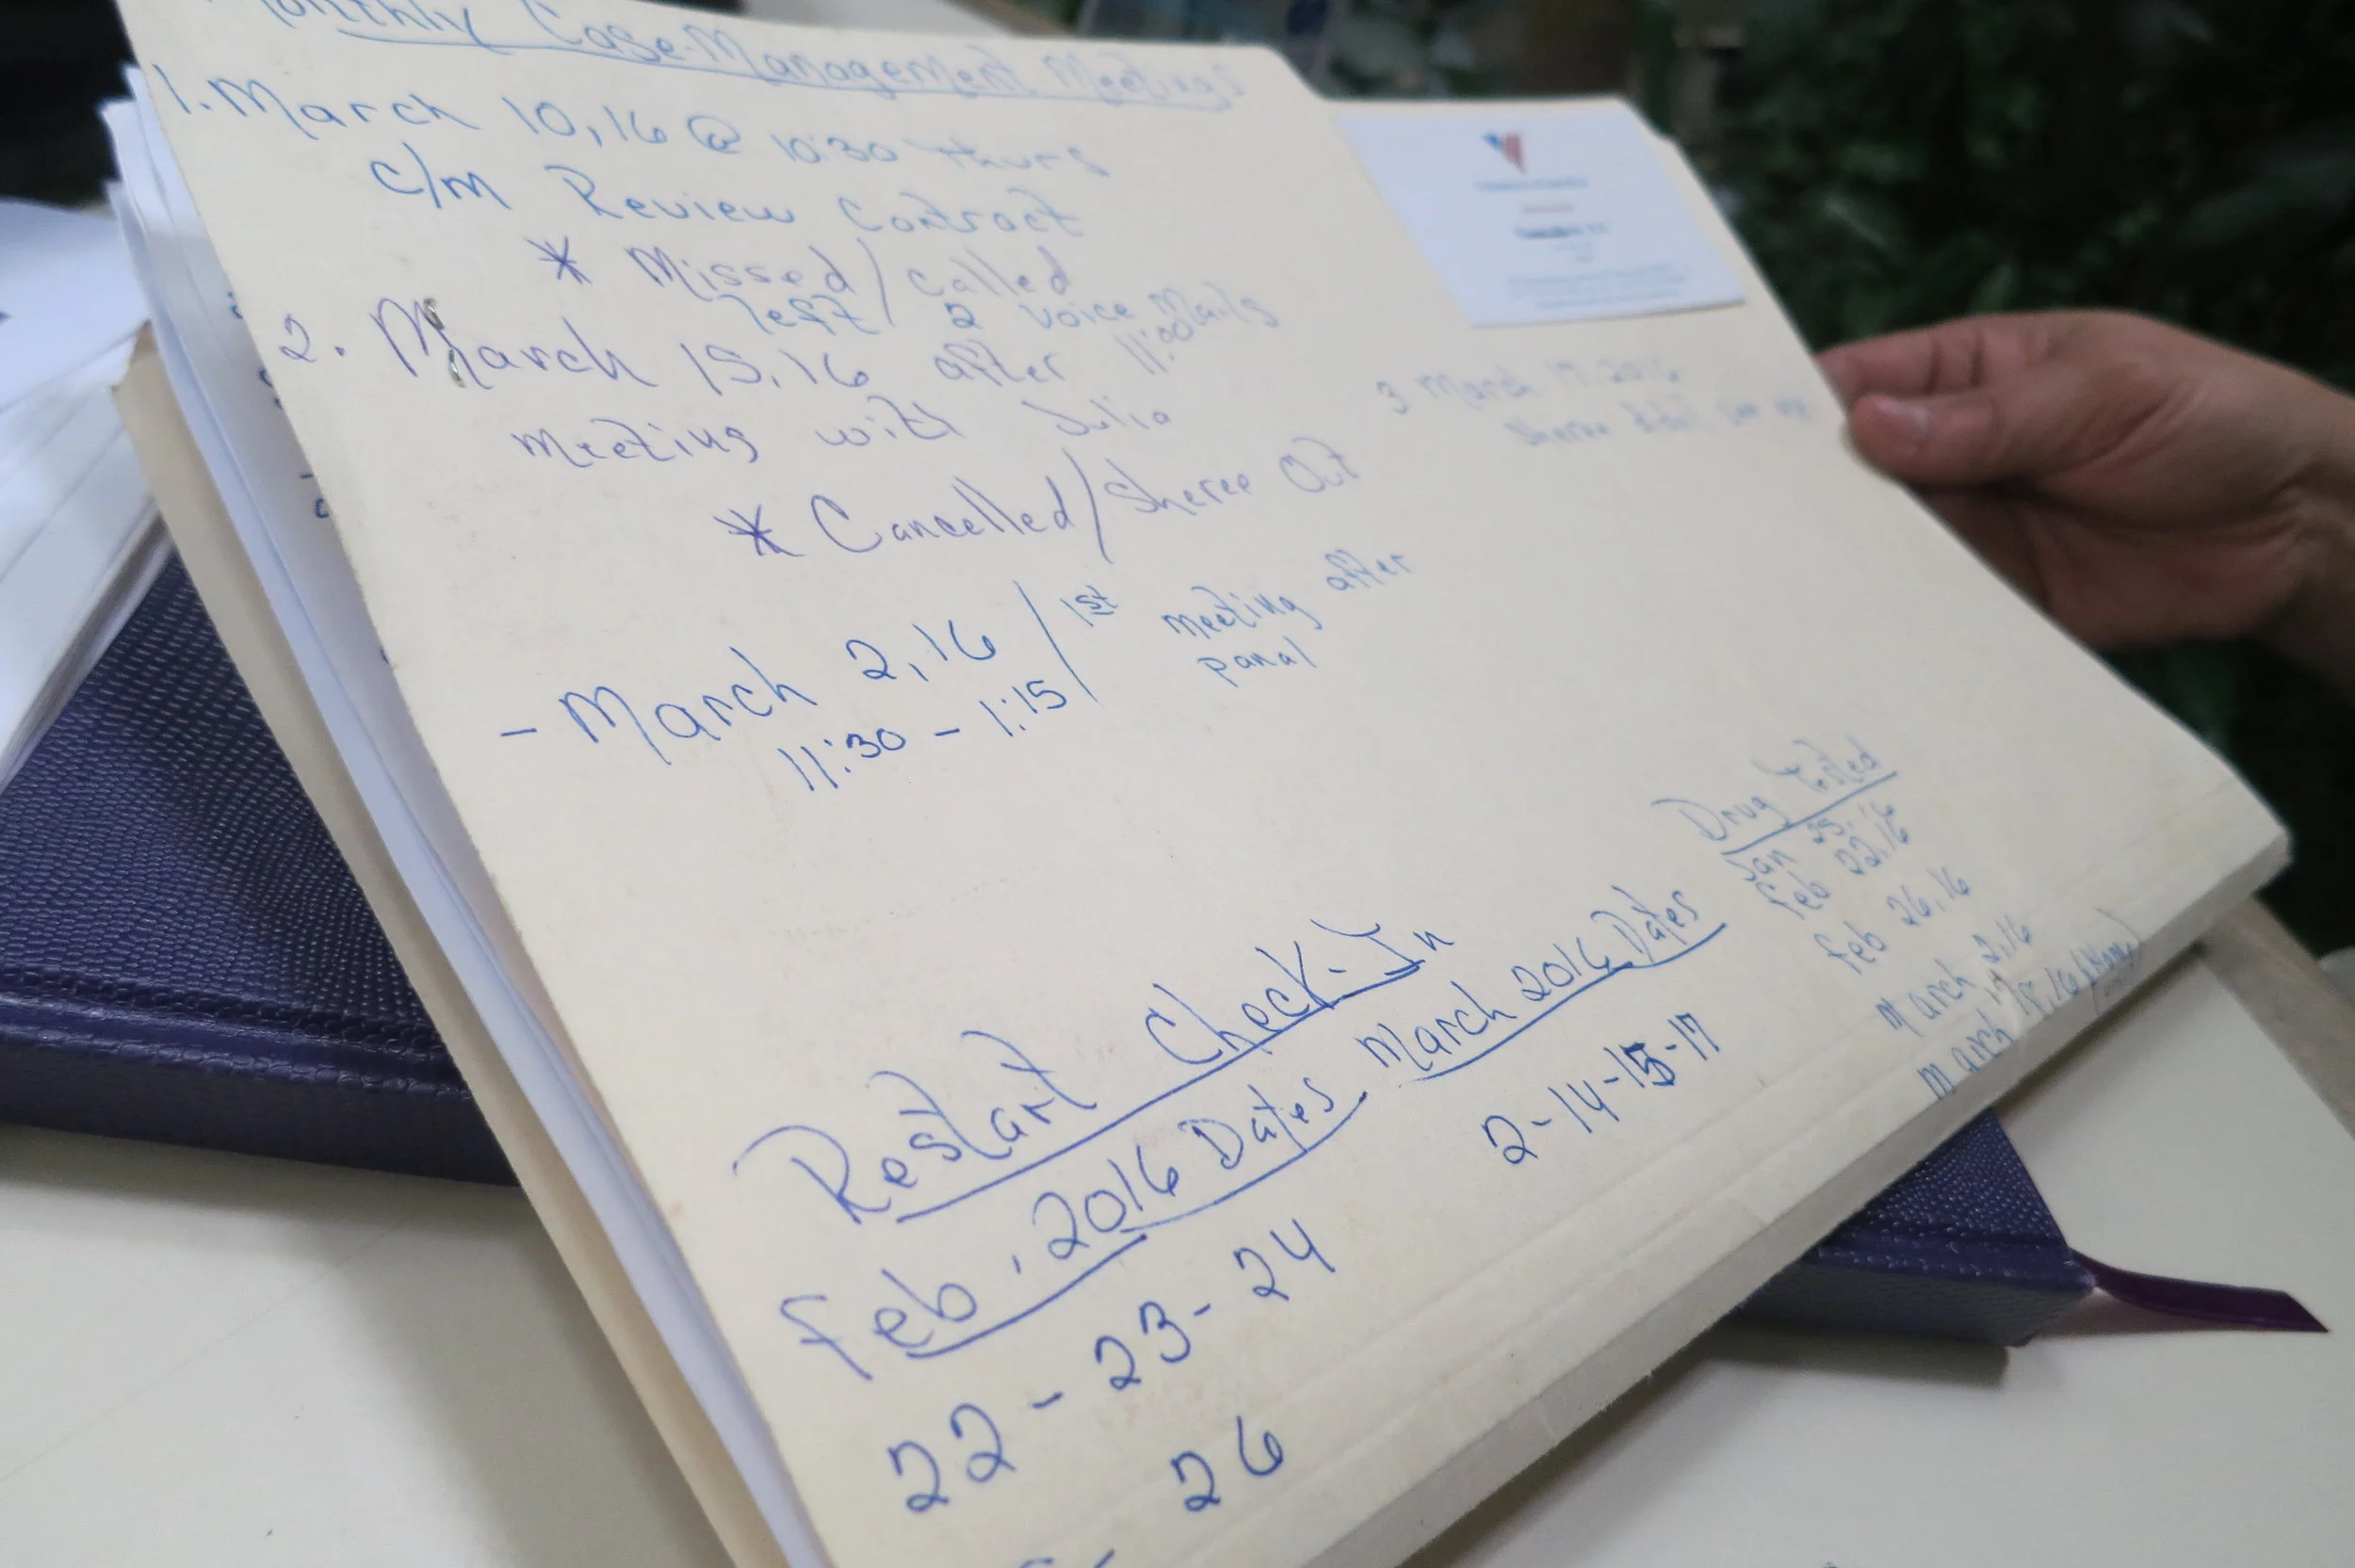 Monthly Case-Management Meetings
1. March 10, 16 @ 10:30 thurs
c/m Review Contract
* Missed / called
left 2 voice mails
2. March 15, 16 after 11:00
meeting with Julia
* Cancelled / Sheree Out
3 March 17, 2016
- March 2, 16 / 1st meeting after
panal
11:30 - 1:15
Drug Tested
Jan 25, 16
Feb 22, 16
Feb 26, 16
March 2, 16
March
Restart Check-In
Feb, 2016 Dates
22 - 23 - 24
26
March 2016 Dates
2-14-15-17